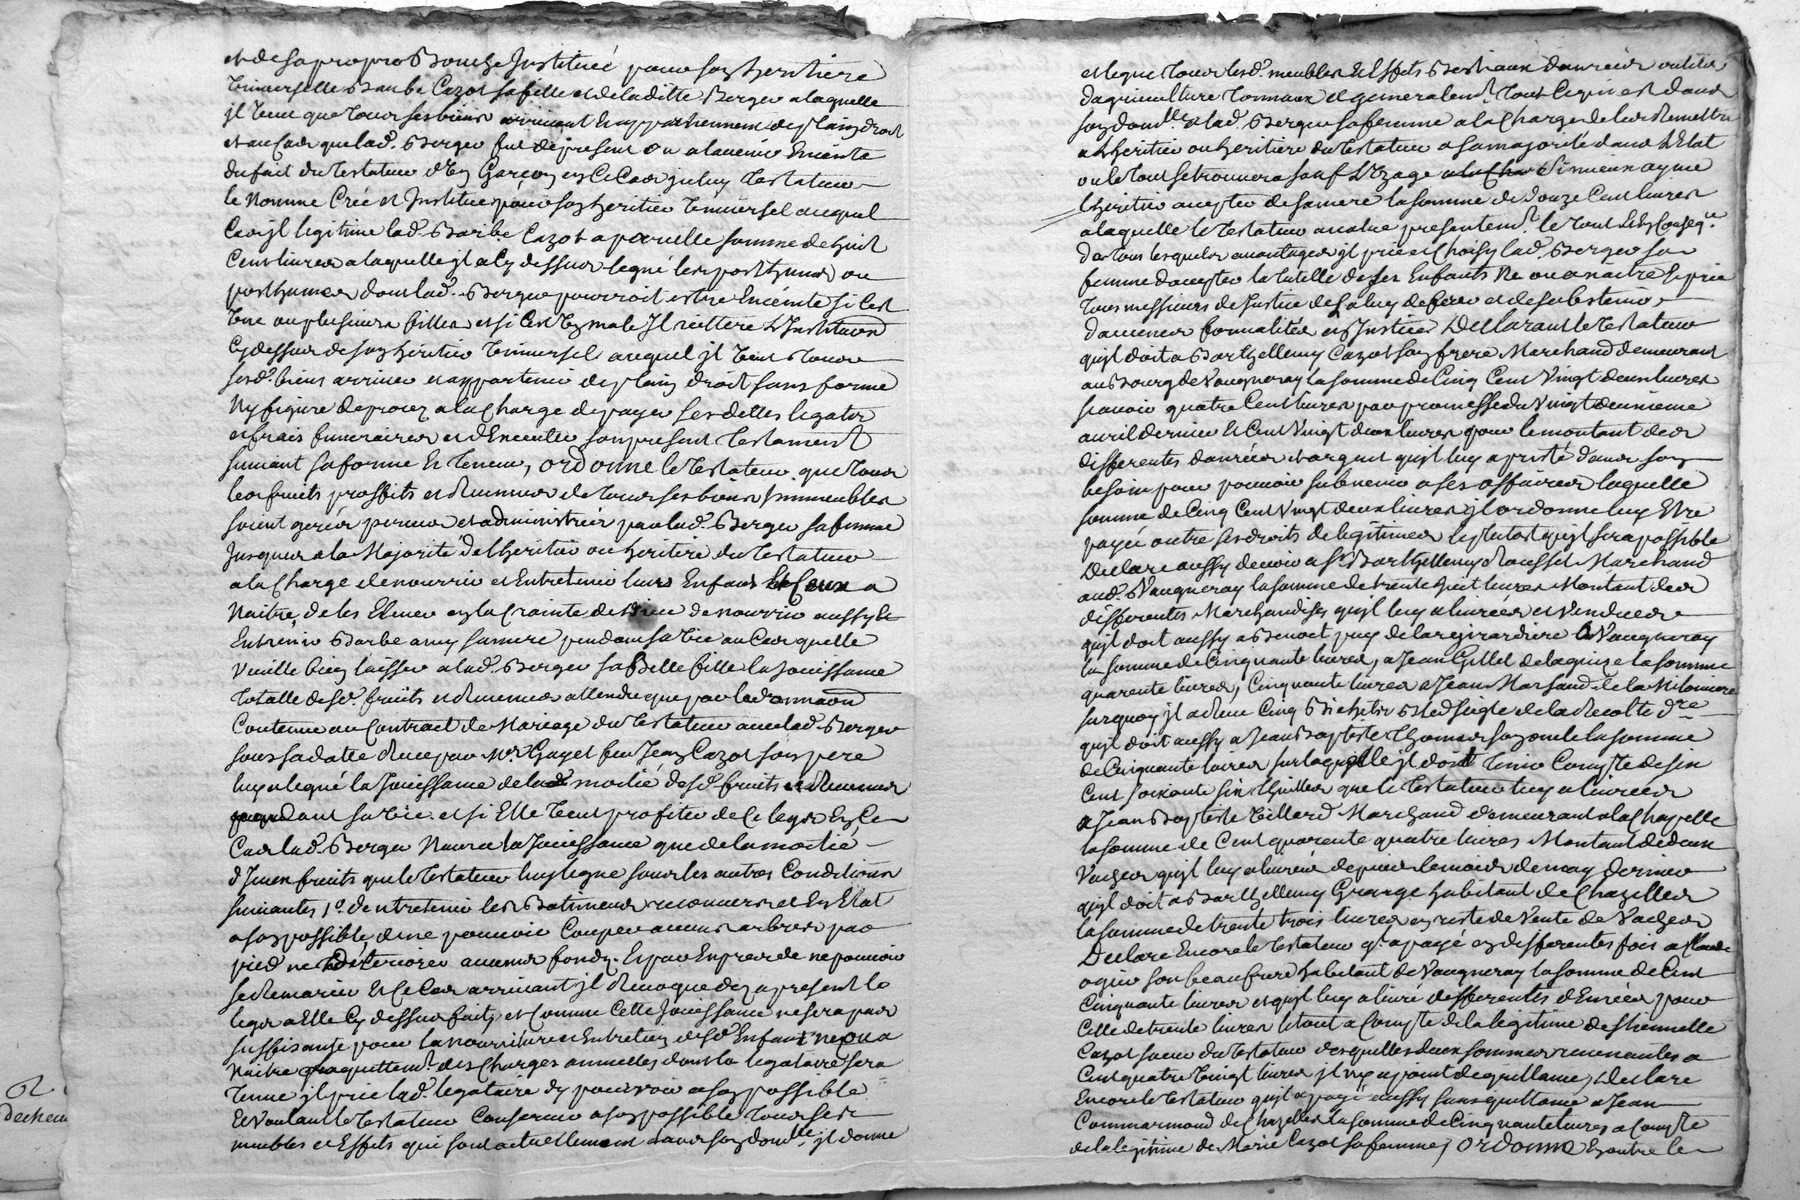 et de sa propre Bouche Institué pour son heritiere
Universelle Barbe Cazot sa fille et de laditte Berger a laquelle
il veut que tous ses biens arrivent et appartiennent de plain droit
et au Cas que lad. Berger fut de present ou a l'avenir Enceinte
du fait du testateur d'un Garçon en ce Cas iceluy testateur
le Nomme Créé et Institue pour son heritier Universel auquel
Cas il legitime lad. Barbe Cazot a pareille somme de huit
Cent livres a laquelle il a cy dessus legué les posthumes ou
posthumes dont lad. Berger pourroit estre Enceinte si c'est
Une ou plusieurs filles et si c'est un male Il reittere L'Institution
Cy dessus de son heritier Universel auquel il veut tous
sesd. biens arriver et appartenir de plain droit sans forme
Ny figure de procez a la Charge de payer les dettes legats
et frais funeraires et d'Executer son present testament
suivant sa forme et teneur, ordonne le testateur que tous
les fruits proffits et Revenus de tous ses biens Immeubles
soient gerés perçus et administrés par lad. Berger sa femme
Jusques a la Majorité de l'heritier ou heritiere du testateur
a la Charge de nourrir et Entretenir leurs Enfans et Ceux a
Naitre, de les Elever en la Crainte de Dieu de nourrir aussy et
Entretenir Barbe sa mere pendant sa vie au Cas quelle
Veuille bien laisser a lad. Berger sa Belle fille la Jouissance
totalle desd. fruits et Revenus attendu que par la donnaon
Contenue au Contract de Mariage du testateur avec lad. Berger
sous sa datte Reçu par Me. Guyot feu Jean Cazot son pere
luy a legué la Jouissance de la moitié desd. fruits et Revenus
pendant sa vie. et si Elle veut profiter de ce legs En Ce
Cas lad. Berger N'aura la Jouissance que de la moitié
d'Iceux fruits que le testateur luy legue sous les autres Conditions
suivantes 1o. d'entretenir les Batimens recouverts et En Etat
a son possible, de ne pouvoir Couper aucuns arbres par
pied ne deteriorer aucuns fonds. Et par Exprez de ne pouvoir
se Remarier et le Cas arrivant il Revoque dez a present le
legs a Elle Cy dessus fait, et Comme Cette Jouissance ne sera pas
suffisante pour la nourriture et Entretien desd. Enfans nés ou a
Naitre Charges annuelles dont la legataire sera
tenue il prie lad. legataire d'y pourvoir a son possible
Et Voulant le testateur Conserver a son possible tous ses
meubles et Effets qui sont actuellement dans son domlle. il donne
et legue tous lesd. meubles et Effets Bestiaux danrées outils
d'agriculture tonneaux et generalemt. tout ce qui est dans
son domlle. a lad. Berger sa femme a la Charge de les Remettre
a l'heritier ou heritiere du testateur a sa majorité dans L'Etat
ou le tout se trouvera sauf L'Uzage Si mieux ayme
l'heritier accepter de sa mere la somme de douze Cent livres
a laquelle le testateur evalue presentemt. le tout
de tous lesquels avantages il prie et Choisy lad. Berger sa
femme d'accepter la tutelle de ses Enfants Né ou a naitre Et prie
tous messieurs de Justice de
d'aucunes formalités en Justice Declarant le testateur
qu'il doit a Barthellemy Cazot son frere Marchand demeurant
au Bourg de Vaugneray la somme de Cinq Cent Vingt deux livres
scavoir quatre Cent livres par promesse du Vingt deuxieme
avril dernier et Cent Vingt deux livres pour le montant de
differentes danrées et argent qu'il luy a preté dans son
besoin pour pouvoir subvenir a ses affaires laquelle
somme de Cinq Cent Vingt deux livres il ordonne luy Etre
payée outre ses droits de legitimes le plutot qu'il sera possible
Declare aussy devoir a Sr. Barthellemy Rousset Marchand
aud. Vaugneray la somme de trente huit livres Montant de
differentes Marchandises qu'il luy a livrées et Vendues
qu'il doit aussy a Benoit puy de la girardiere a Vaugneray
la somme de Cinquante livres, a Jean Gillet de la la somme
quarente livres, Cinquante livres a Jean Marsaud de la Miloniere
sur quoy il a Reçu Cinq Bichets Bled seigle de la Recolte dre.
qu'il doit aussy a Jean Baptiste Thomas la somme
de Cinquante livres sur laquelle il doit tenir Compte de six
Cent soixante six que le testateur luy a livrées
a Jean Baptiste Villard Marchand demeurant a la Chapelle
la somme de Cent quarente quatre livres Montant de deux
Vaches qu'il luy a livrées depuis le mois de may dernier
qu'il doit a Barthellemy Grange habitant de Chazelles
la somme de trente trois livres en reste de Vente de Vaches
Declare Encore le testateur qu'il a payé en differentes fois a Claude
ogier son beaufrere habitant de Vaugneray la somme de Cent
Cinquante livres et qu'il luy a livré differentes denrées pour
Celle de trente livres le tout a Compte de la legitime d'Etiennette
Cazot soeur du testateur desquelles deux sommes revenantes a
Cent quatre Vingt livres il n'y a point de quittance, Declare
Encore le testateur qu'il a payé aussy sans quittance a Jean
Commarmond de Chazelles la somme de Cinquante livres a Compte
de la legitime de Marie Cazot sa femme, Ordonne En outre le
dechem